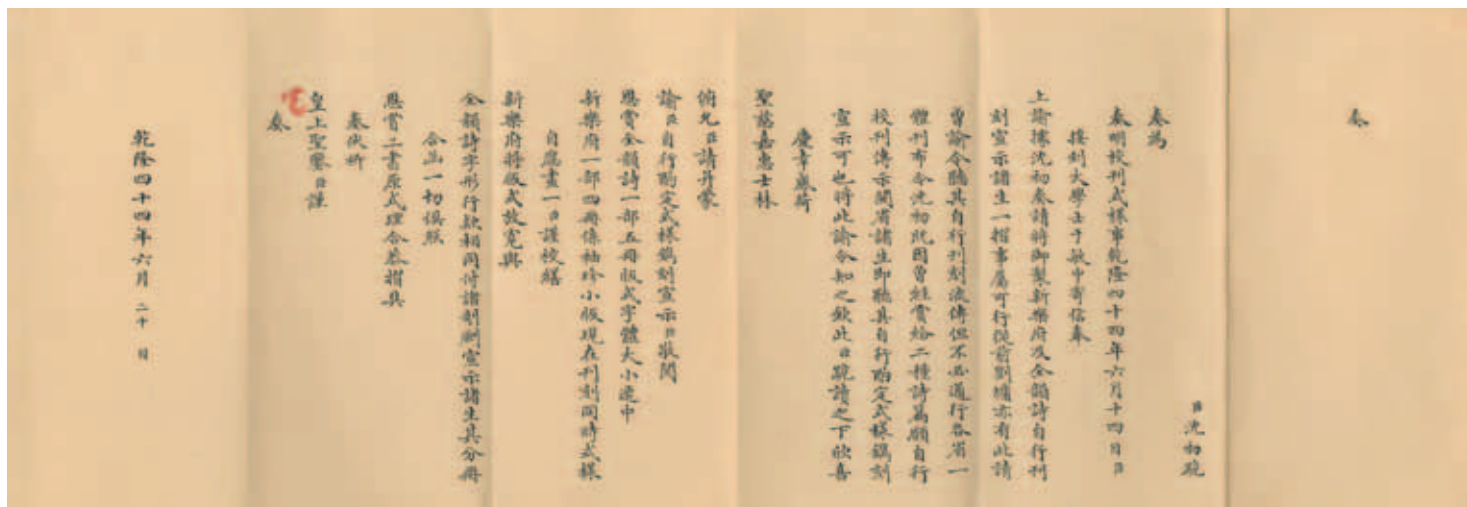 奏
臣沈初跪
奏為
奏明校刊式樣事乾隆四十四年六月十四日臣
接到大學士于敏中寄信奉
上諭據沈初奏請將御製新樂府及全韻詩自行刊
刻宣示諸生一摺事屬可行從前劉墉亦有此請
曾諭令聽其自行刊刻流傳但不必通行各省一
體刊布今沈初既因曾經賞給二種詩蒿願自行
校刊傳示閩省諸生即聽其自行酌定式樣鐫刻
宣示可也將此諭令知之欽此臣跪讀之下欣喜
慶幸感荷
聖慈嘉惠士林
俯允臣請并蒙
諭臣自行酌定式樣鐫刻宣示臣敬閱
恩賞全韻詩一部五冊版式字體大小適中
新樂府一部四冊係袖珍小版現在刊刻同時式樣
自應畫一臣謹校繕
新樂府將版式放寬與
全韻詩字形行款相同付諸剞劂宣示諸生其分冊
合函一切俱照
恩賞二書原式理合恭摺具
奏伏祈
皇上聖鑒臣謹
奏
乾隆四十四年六月 二十 日